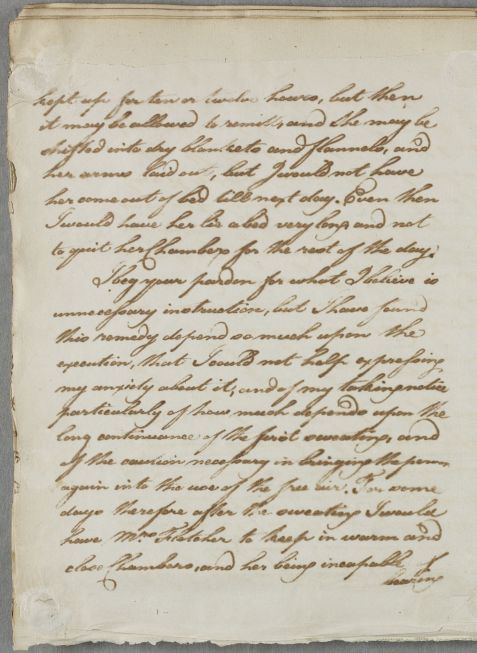 kept up for ten or twelve hours, but then
it may be allowed to remitt, and she may be
shifted into dry blankets and flannels, and
her arms laid out, but I would not have
her come out of bed till next day. Even then
I would have her lie a bed very long and not
to quit her Chamber for the rest of the day.
I beg your pardon for what I believe is
unnecessary instruction, but I have found
this remedy depend so much upon the
execution, that I could not help expressing
my anxiety about it, and of my taking notice
particularly of how much depends upon the
long continuance of the first sweating, and
of the caution necessary in bringing the person
again into the use of the free air. For some
days therefore after the sweating I would
have Mrs Fletcher to keep in warm and
close Chambers, and her being incapable of
bearing